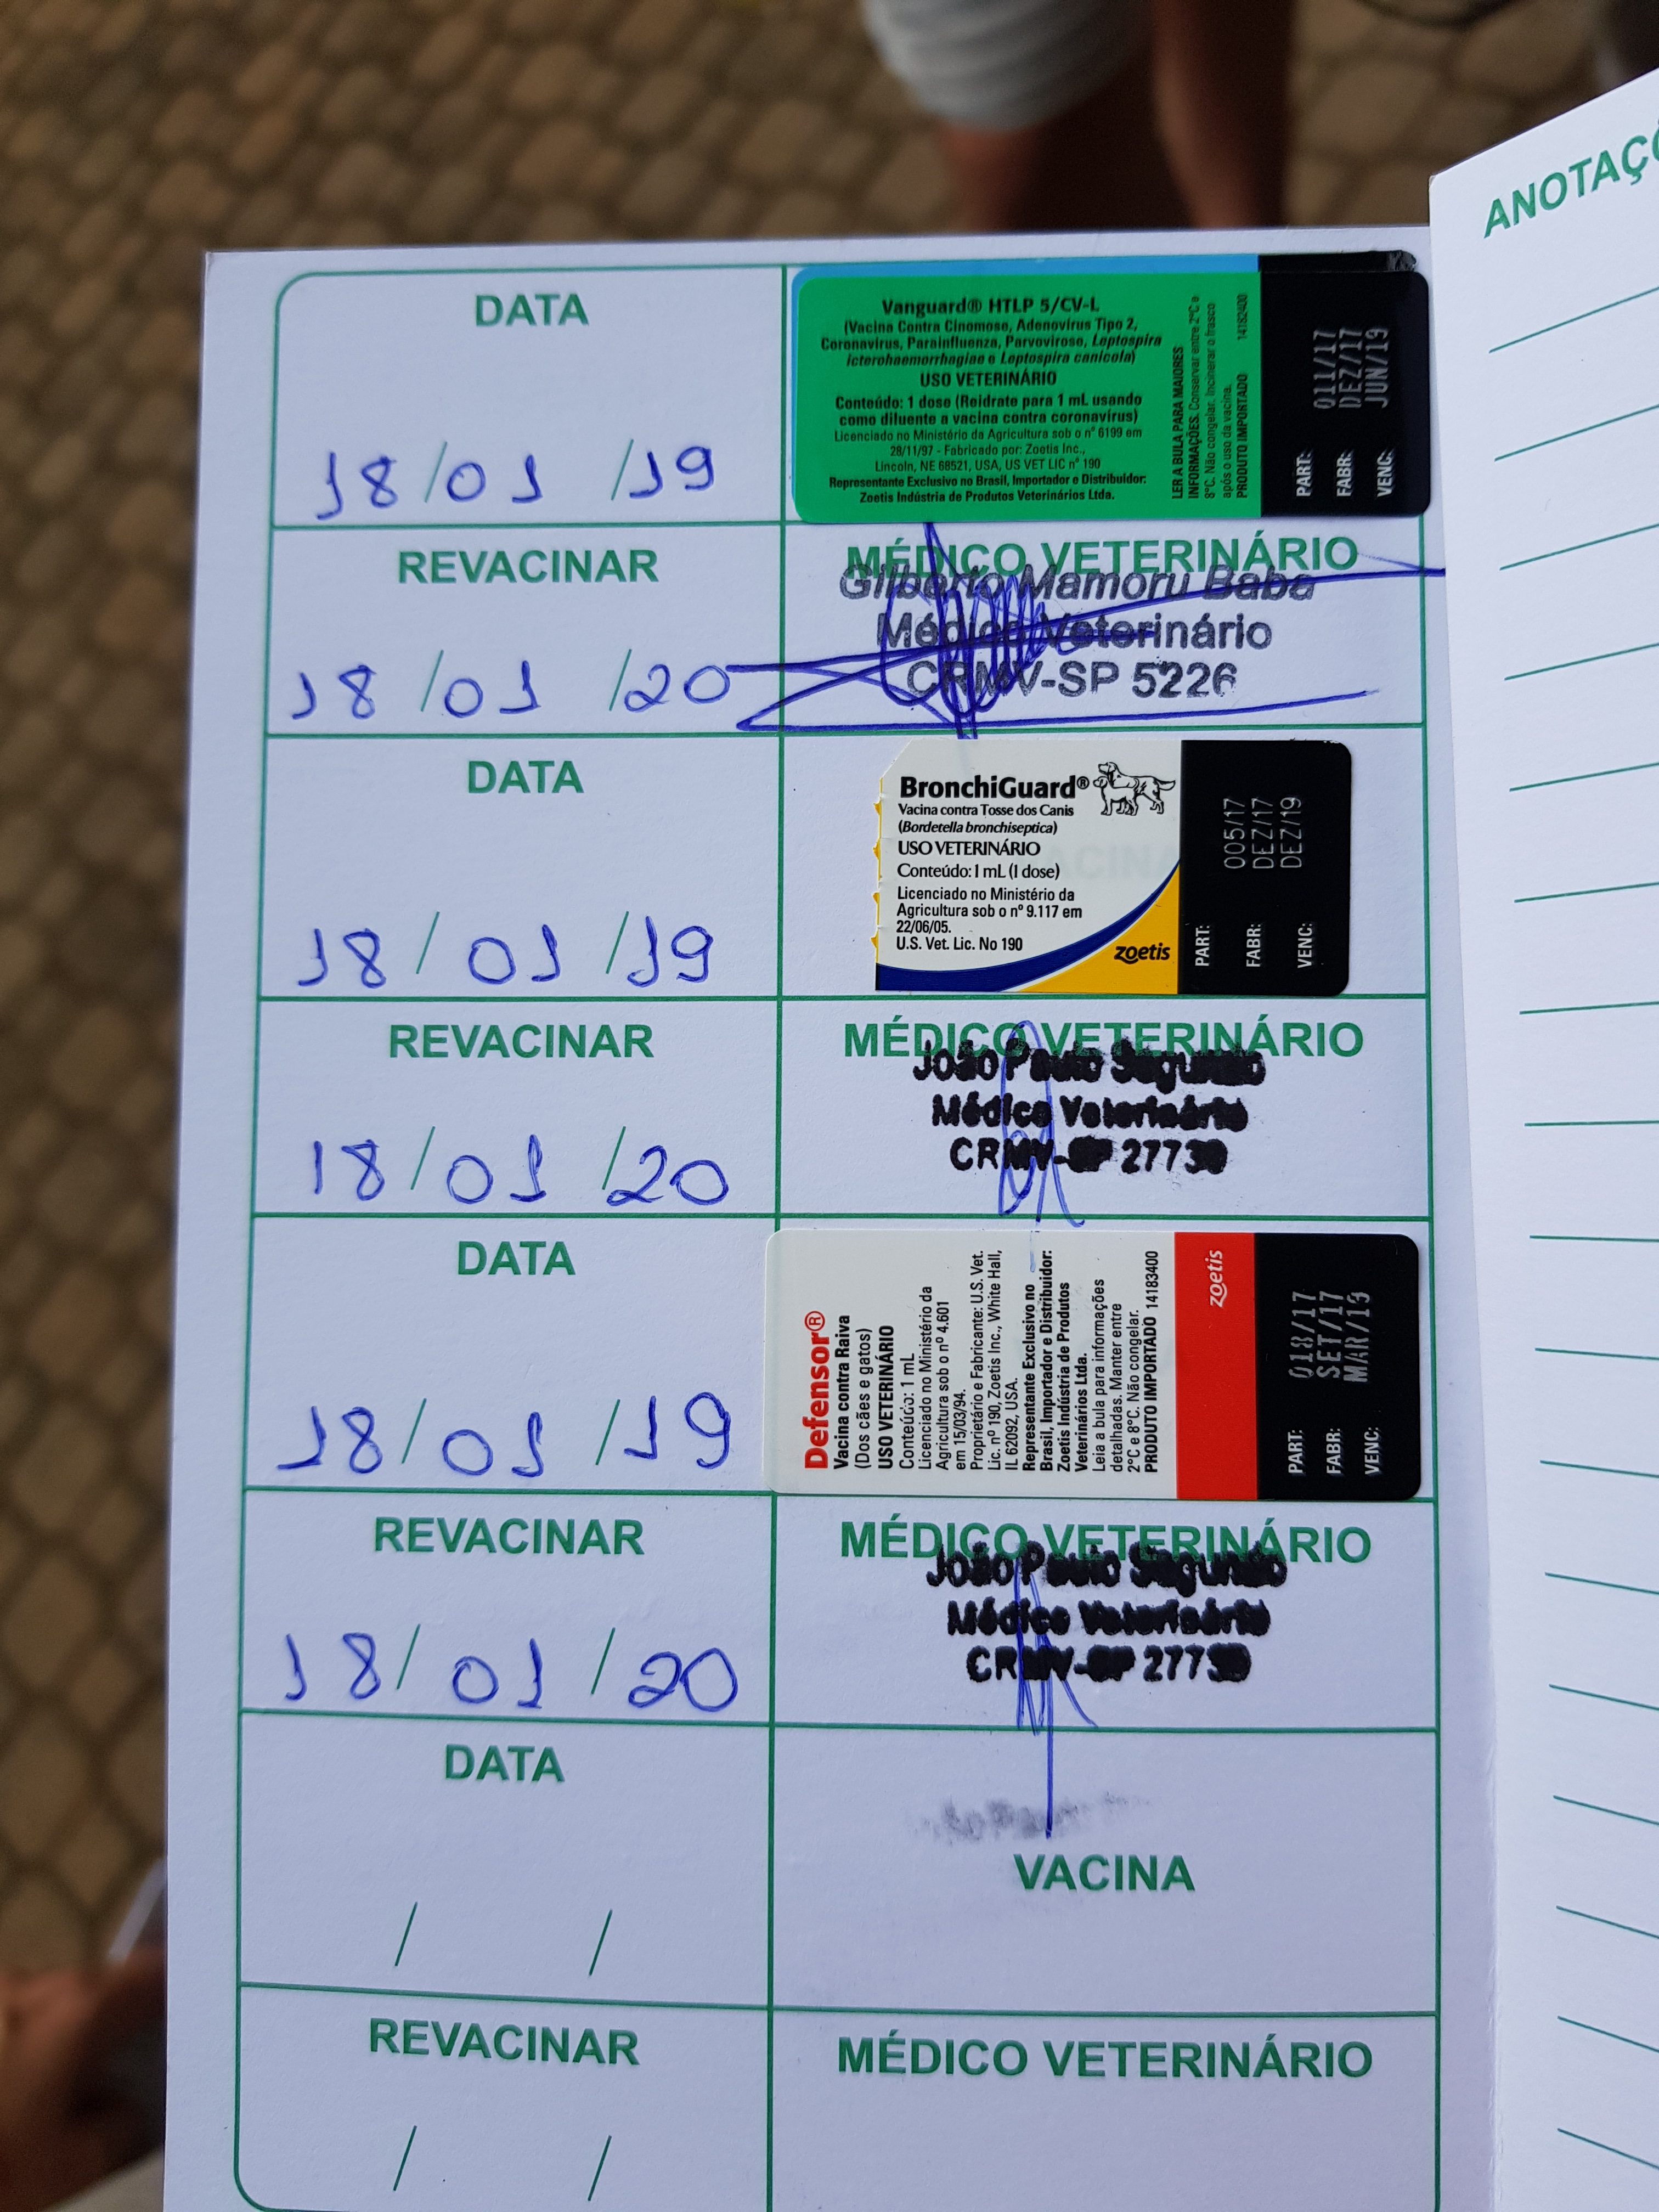 ANOTAÇÕ
DATA
18/01/19
Vanguard® HTLP 5/CV-L
(Vacina Contra Cinomose, Adenovírus Tipo 2,
Coronavírus, Parainfluenza, Parvovirose, Leptospira
icterohaemorrhagiae e Leptospira canicola)
USO VETERINÁRIO
Conteúdo: 1 dose (Reidrate para 1 mL usando
como diluente a vacina contra coronavírus)
Licenciado no Ministério da Agricultura sob o nº 6199 em
28/11/97 - Fabricado por: Zoetis Inc.,
Lincoln, NE 68521, USA, US VET LIC nº 190
Representante Exclusivo no Brasil, Importador e Distribuidor:
Zoetis Indústria de Produtos Veterinários Ltda.
LER A BULA PARA MAIORES
INFORMAÇÕES. Conservar entre 2ºC e
8ºC. Não congelar. Incinerar o frasco
após o uso da vacina.
PRODUTO IMPORTADO 14182400
PART: 011/17
FABR: DEZ/17
VENC: JUN/19
REVACINAR
18/01/20
MÉDICO VETERINÁRIO
Gilberto Mamoru Baba
Médico Veterinário
CRMV-SP 5226
DATA
18/01/19
BronchiGuard®
Vacina contra Tosse dos Canis
(Bordetella bronchiseptica)
USO VETERINÁRIO
Conteúdo: 1 mL (1 dose)
Licenciado no Ministério da
Agricultura sob o nº 9.117 em
22/06/05.
U.S. Vet. Lic. No 190
zoetis
PART: 005/17
FABR: DEZ/17
VENC: DEZ/19
REVACINAR
18/01/20
MÉDICO VETERINÁRIO
João Paulo Segundo
Médico Veterinário
CRMV-SP
DATA
18/01/19
Defensor®
Vacina contra Raiva
(Dos cães e gatos)
USO VETERINÁRIO
Conteúdo: 1 mL
Licenciado no Ministério da
Agricultura sob o nº 4.601
em 15/03/94.
Proprietário e Fabricante: U.S. Vet.
Lic. nº 190, Zoetis Inc., White Hall,
IL 62092, USA.
Representante Exclusivo no
Brasil, Importador e Distribuidor:
Zoetis Indústria de Produtos
Veterinários Ltda.
Leia a bula para informações
detalhadas. Manter entre
2ºC e 8ºC. Não congelar.
PRODUTO IMPORTADO 14183400
zoetis
PART: 018/17
FABR: SET/17
VENC: MAR/19
REVACINAR
18/01/20
MÉDICO VETERINÁRIO
João Paulo Segundo
Médico Veterinário
CRMV-SP
DATA
/ /
VACINA
REVACINAR
/ /
MÉDICO VETERINÁRIO